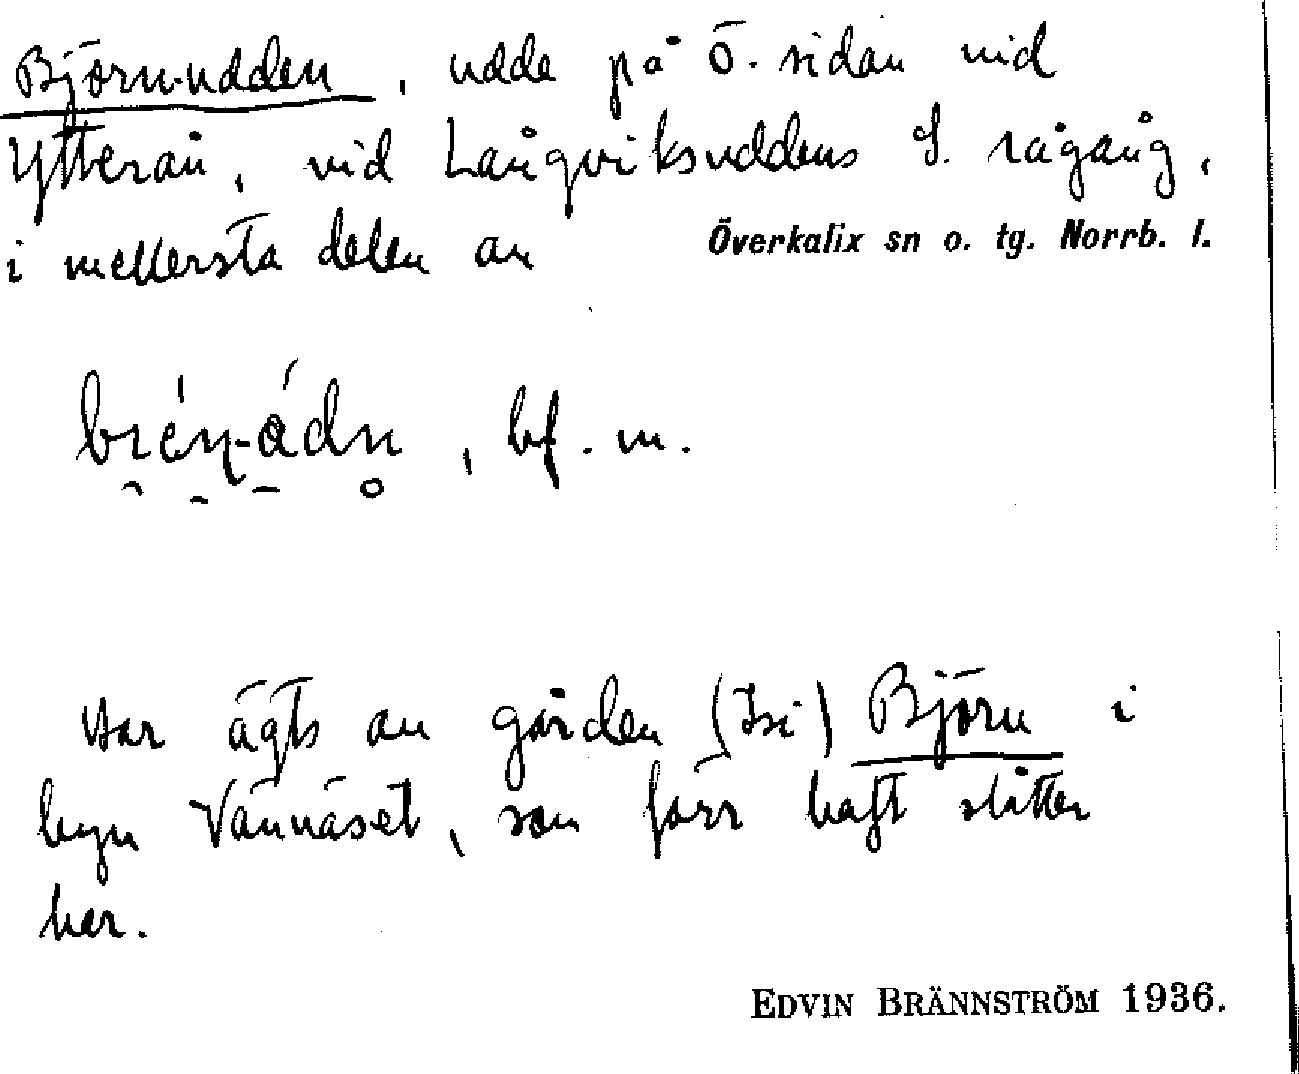 Björn-udden, udde på Ö. sidan vid
Ytterån, vid Långviksuddens S. rågång,
i mellersta delen av
Överkalix sn o. tg. Norrb. l.
bf. m.
Har ägts av gården (Isi) Björn i
byn Vännäset, som förr haft slåtter
här.
EDVIN BRÄNNSTRÖM 1936.